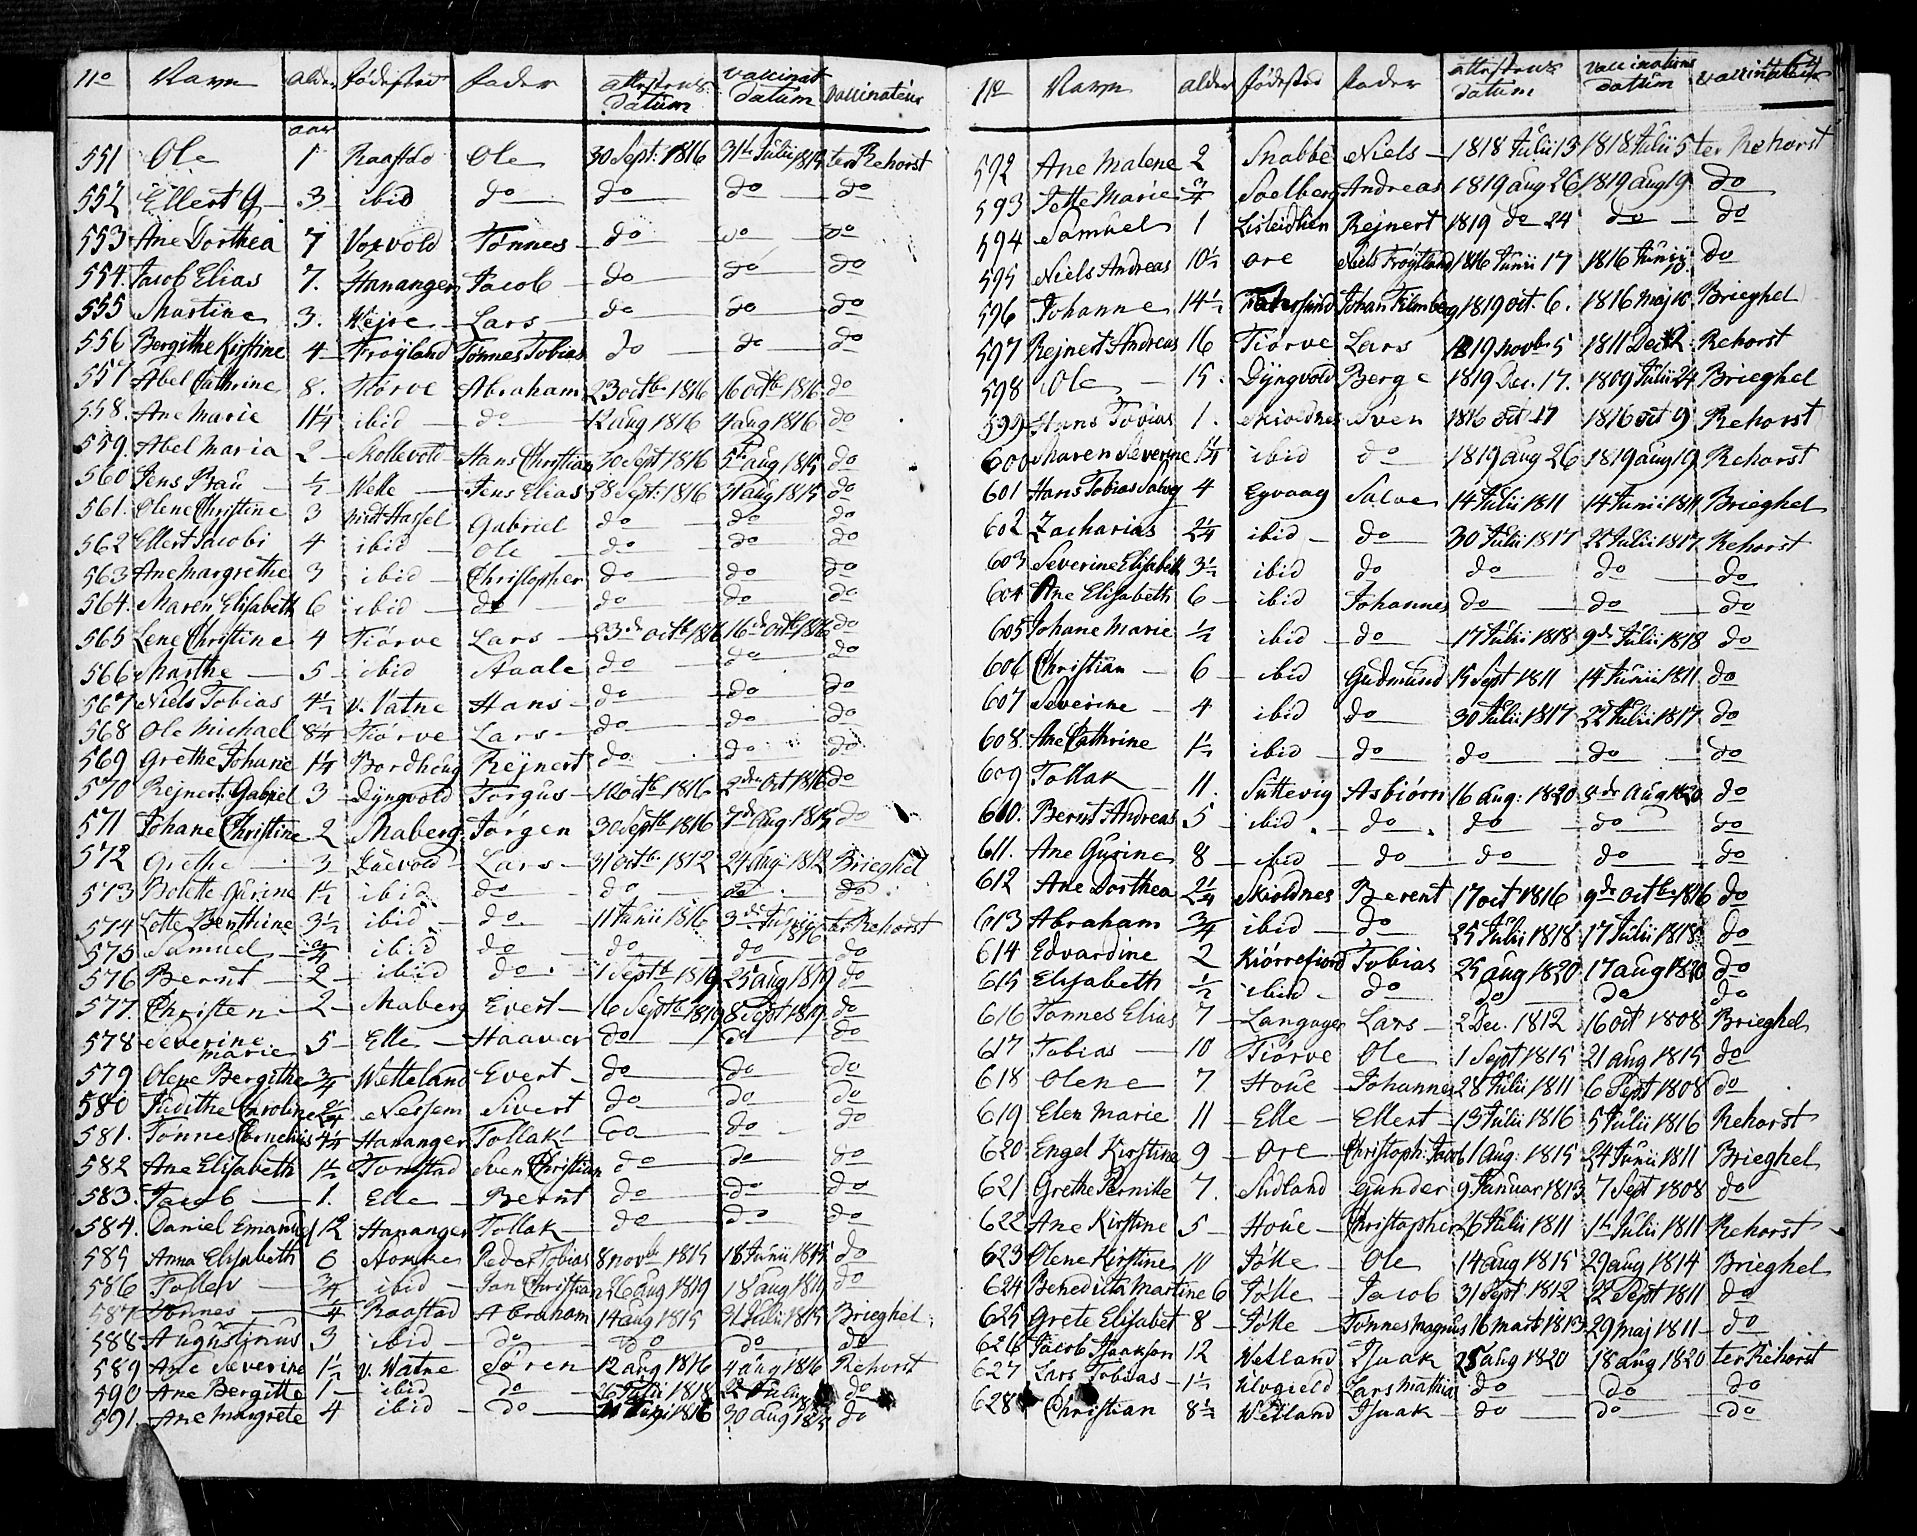 No Navn alder fødested fader attestens datum vaccinat datum vaccinateur
aar
551 Ole 1 Raastad Ole 30 Sept: 1816 31te Julii 1815 ter Rehorst
552 Ellert G 3 ibid do do do do
553 Ane Dorthea 7 Vorvold Tønnes do do do
554. Jacob Elias 7. Hananger Jacob do do do
555 Martine 3. Vejre Lars do do do
556 Bergithe Kirstine 4 Frøyland Tønnes Tobias do do do
557 Abel Cathrine 8. Tiørve Abraham 23 octbr 1816 16 octb 1816 do
558. Ane Marie 1 1/4 ibid do 12 aug 1816 4 aug 1816 do
559. Abel Maria 2 Skollevold Hans Christian 30 Sept 1816 5te aug 1815 do
560 Jens Brau 1/2 Welle Jens Elias 28 Sept: 1816 31 aug 1815 do
561. Olene Christine 3 midt Hassel Gabriel do do do
562 Ellert Jacobi 4 ibid Ole do do do
563 Ane Margrethe 3 ibid Christopher do do do
564. Maren Elisabeth 6 ibid do do do do
565 Lene Christine 4 Tiørve Lars 23de octb 1816 16de octb 1816 do
566 Marthe 5 ibid Aaale do do do
567 Niels Tobias 4 1/2 v. Vatne Hans do do do
568 Ole Michael 8 1/4 Tiørve Lars do do do
569 Grethe Johane 1 1/4 Bordhoug Rejnert do do do
570 Rejnert Gabriel 3 Dyngvold Torgus 1 octb 1816 2den oct 1816 do
571 Johane Christine 2 Maberg Jørgen 30 Septb 1816 7de aug 1815 do
572 Grethe 3 Laevold Lars 31 octb 1812 24 aug 1812 Brieghel
573 Bolette Gurine 1 1/2 ibid do do do do
574 Lotte Benthine 3 1/2 ibid do 11 Junii 1816 3de Junii 1816 ter Rehorst
575 Samuel 3/4 ibid do do do do
576 Bernt 2 ibid do 1 Septb 1819 25 aug 1819 do
577. Christen 2 Maberg Evert 16 Septb 1819 8 Sept 1819 do
578 Severine Marie 5 Elle Haaver do do do
579 Olene Bergithe 3/4 Wetteland Evert do do do
580 Judithe Caroline 2 1/4 Nessem Sivert do do do
581. Tønnes Cornelius 4 1/2 Hananger Tollak do do do
582 Ane Elisabeth 1 1/2 Tomstad Sven Christian do do do
583. Jacob 1. Elle Bernt do do do
584. Daniel Emanuel 12 Hananger Tollak do do do
585 Anna Elisabeth 6 Peder Tobias 8 novb 1815 18 Junii 1815 do
586 Tollev 3/4 ibid Jan Christian 26 aug 1819 18 aug 1819 do
587 Tønnes 4 Raastad Abraham 14 aug 1815 31 Julii 1815 Brieghel
588 Augustinus 3 ibid do do do do
589 Ane Severine 1 1/2 v. Watne Søren 12 aug 1816 4 aug 1816 Rehorst
590 Ane Bergitte 1 ibid do 26 Julii 1818 22 Julii do
591. Ane Margrete 4 ibid do 1816 30 aug do
No Navn alder fødested fader attestens datum vaccinations datum vaccinateur
592 Ane Malene 2 Snabbe Niels 1818 Julii 13 1818 Julii 5 ter Rehorst
593 Jette Marie 3/4 Soelberg Andreas 1819 aug 26 1819 aug 19 do
594 Samuel 1 Listeidhien Rejnert 1819 do 24 do do
595 Niels Andreas 10 1/2 ore Niels Frøytland 1816 Junii 17 1816 Junii 10 do
596 Johanne 14 1/2 Farsund Johan Filmberg 1819 oct. 6. 1816 Maj 10 Brieghel
597 Rejnert Andreas 16 Tiørve Lars 1819 novb 5 1811 Dec 12 Rehorst
598 Ole 15. Dyngvold Berge 1819 Dec. 17. 1809 Julii 24. Brieghel
599 Hans Tobias 1. Skioldnes Sven 1816 oct 17 1816 oct 9 Rehorst
600 Maren Severine 1 1/4 ibid do 1819 aug 26 1819 aug 19 Rehorst
601 Hans Tobias Salvej 4 Egvaag Salve 14 Julii 1811 14 Junii 1811 Brieghel
602 Zacharias 2 1/4 ibid do 30 Julii 1817 22 Julii 1817 Rehorst
603 Severine Elisabeth 3 1/2 ibid do do do do
604 Ane Elisabeth 6 ibid Johannes do do do
605 Johane Marie 1/2 ibid do 17 Julii 1818 9de Julii 1818 do
606 Christian 6 ibid Gudmund 15 Sept 1811 14 Junii 1811 do
607 Severine 4 ibid do 30 Julii 1817 22 Julii 1817 do
608. Ane Cathrine 1 1/2 ibid do do do do
609 Tollak 11. Suttevig Asbiørn 16 aug: 1820 9de Aug 1820 do
610. Bernt Andreas 5 ibid do do do do
611. Ane Gurine 8 ibid do do do do
612 Ane Dorthea 2 1/4 Skioldnes Berent 17 oct 1816 9de octbr 1816 do
613 Abraham 3/4 ibid do 25 Julii 1818 17 Julii 1818 do
614 Edvardine 2 Kiørrefiord Tobias 25 aug 1820 17 aug 1820 do
615 Elisabeth 1/2 ibid do do do do
616 Tønnes Elias 7 Langager Lars 2 Dec. 1812 16 oct 1808 Brieghel
617 Tobias 10 Tiørve Ole 1 Sept 1815 21 aug 1815 do
618 Olene 7 Houe Johannes 28 Julii 1811 6 Sept 1808 do
619 Elen Marie 11 Elle Ellert 13 Julii 1816 5 Julii 1816 Rehorst
620 Engel Kirstine 9 Ore Christoph: Jacob 1 Aug: 1815 24 Junii 1811 Brieghel
621 Grethe Pernille 7. Sudland Gunder 9 Januar 1813 7 Sept 1808 do
622 Ane Kirstine 5 Houe Christopher 26 Julii 1811 1te Julii 1811 Rehorst
623 Olene Kirstine 10 Jølle Ole 14 aug 1815 29 aug 1814 Brieghel
624 Benedicta Martine 6 Jølle Jacob 31 Sept 1812 22 Sept 1811 do
625 Grete Elisabet 8 Jølle Tønnes Magnus 16 marts 1813 29 maj 1811 do
626 Jacob Isaakson 12 Wetland Isaak 25 aug 1820 18 aug 1820 ter Rehorst
627 Lars Tobias 1 1/2 Ulvgield Lars Mathias do do do
628 Christian 8 1/2 Wetland Isaak do do do